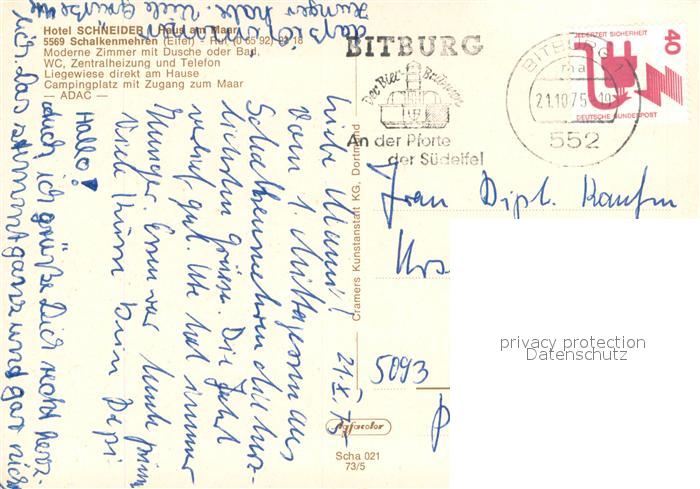 Hotel SCHNEIDER Haus am Maar
5569 Schalkenmehren (Eifel) - Ruf (0 65 92) 18
Moderne Zimmer mit Dusche oder Bad,
WC, Zentralheizung und Telefon
Liegewiese direkt am Hause
Campingplatz mit Zugang zum Maar
— ADAC —
BITBURG
Der Bier Brunnen
An der Pforte
der Südeifel
BITBURG 1
ma
21.10.75
552
JEDERZEIT SICHERHEIT
40
DEUTSCHE BUNDESPOST
Frau Dipl. Kaufm
Urs
5093
21.X.75
Liebe Mami!
Vom 1. Mittagessen aus
Schalkenmehren die herz-
lichsten Grüsse. Die Fahrt
verlief gut. Ute hat immer
Hunger. Essen war prima
Viele Küsse Dein Papi
Hallo!
auch ich grüße Dich recht herz-
lich. Das stimmt ganz und gar nicht
daß ich immer
Hunger habe. Viele Grüße
Cramers Kunstanstalt KG, Dortmund
Agfacolor
Scha 021
73/5
privacy protection
Datenschutz